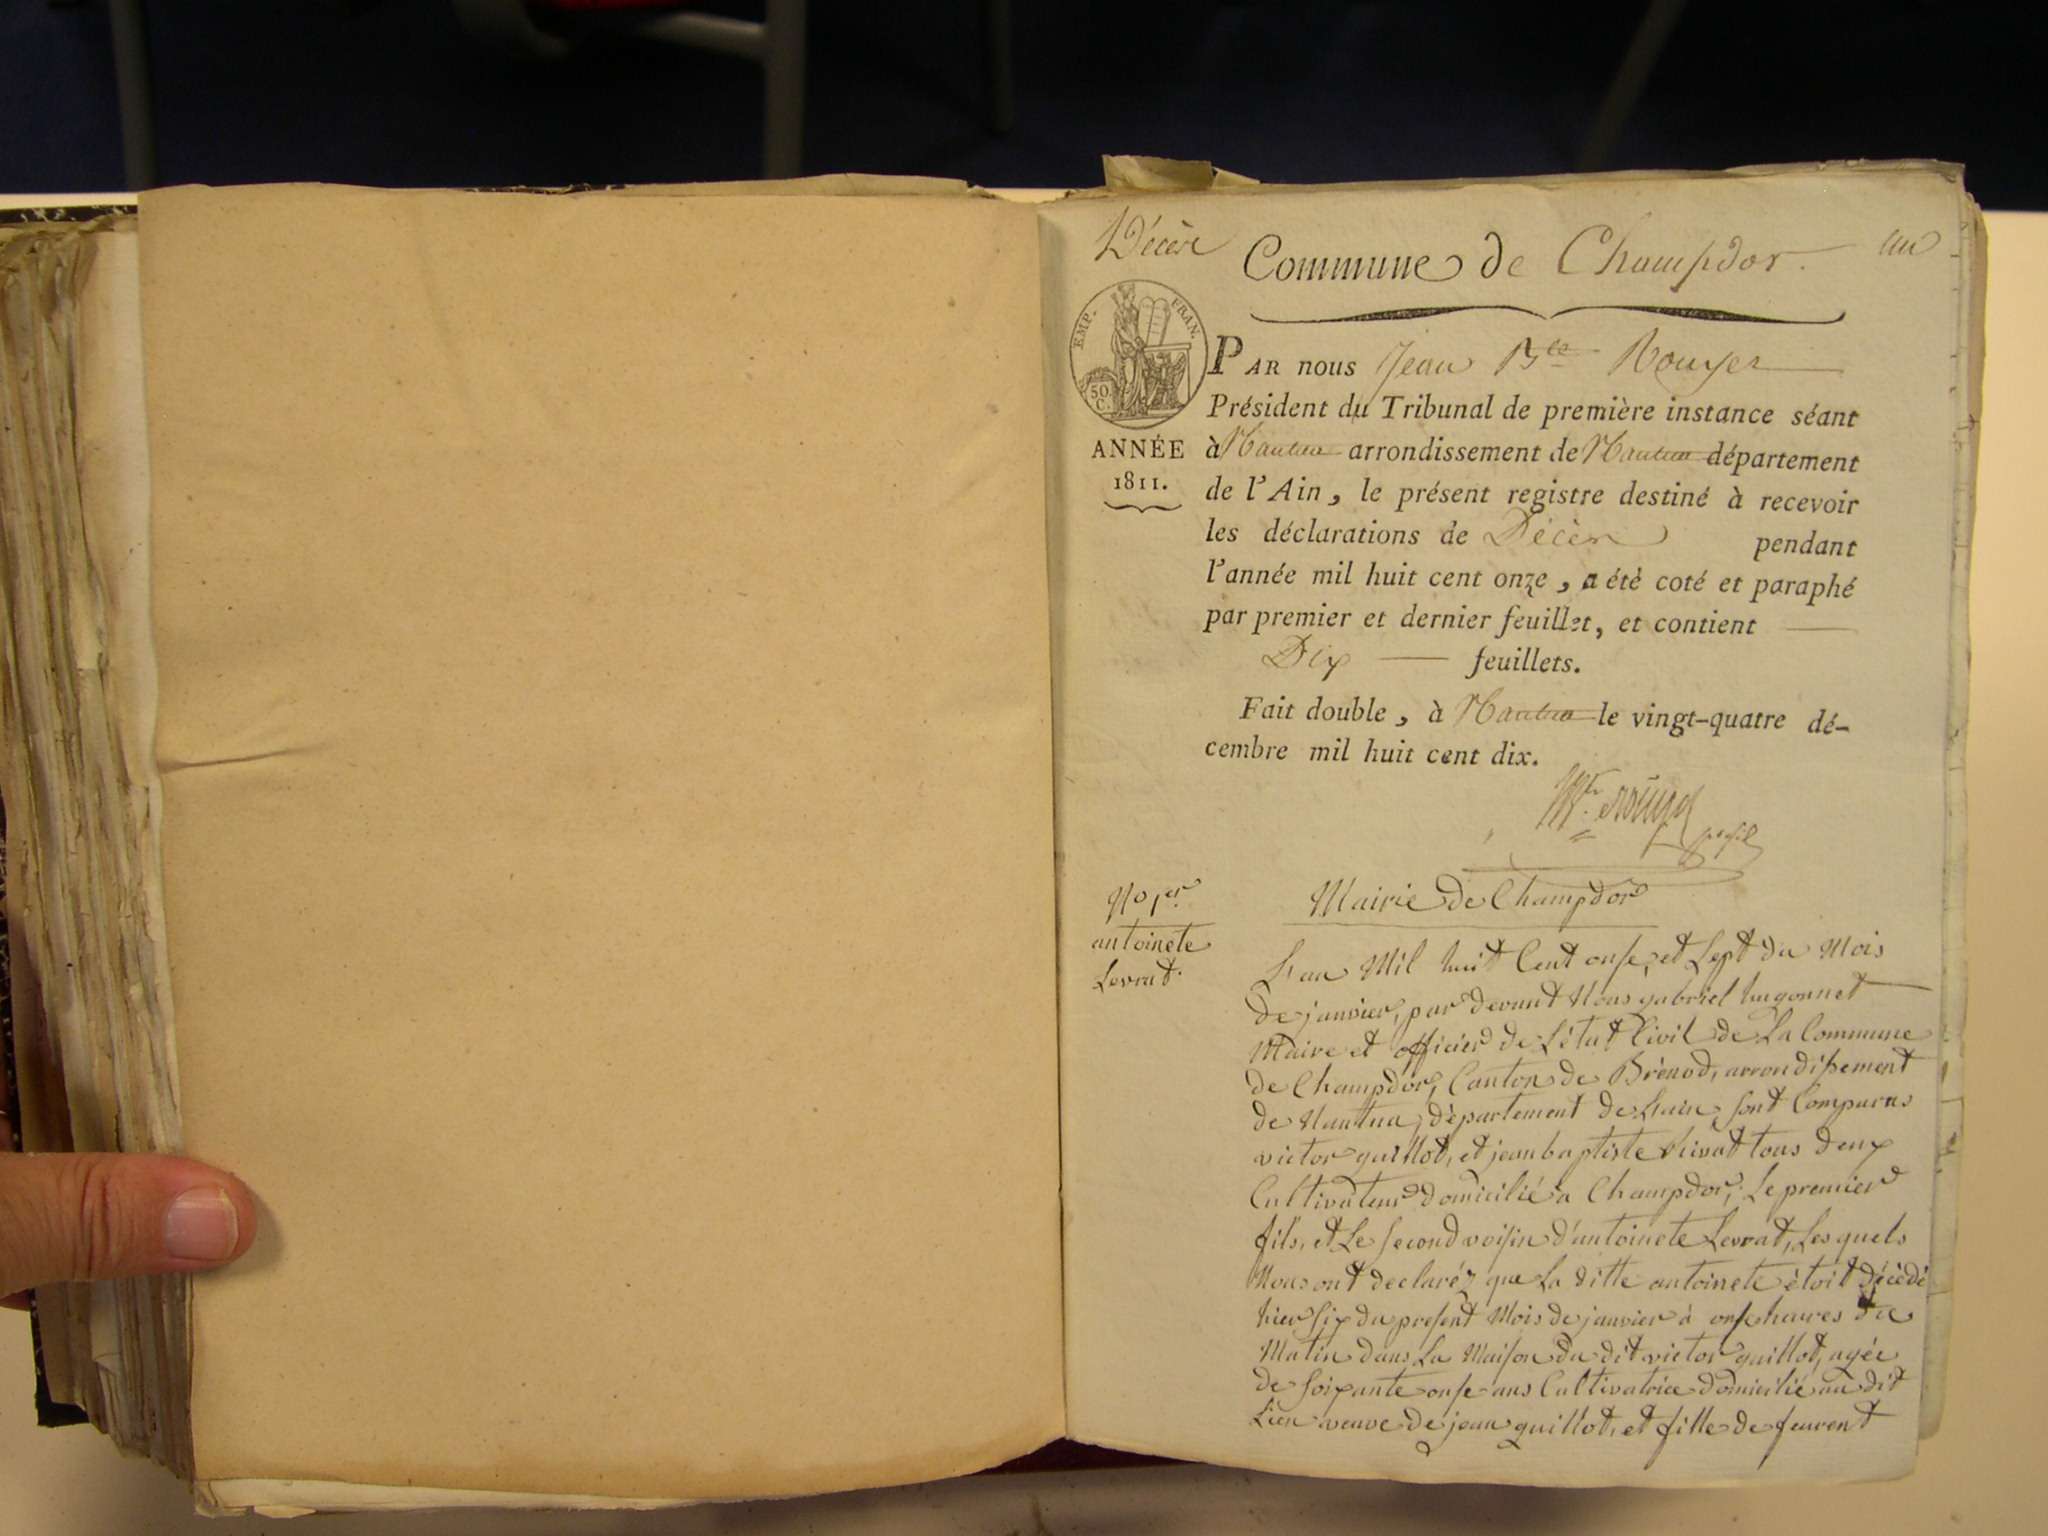 Décès
Commune de Champdor.
un
EMP. FRAN.
50 C.
ANNÉE
1811.
PAR nous Jean Bte Rouyer
Président du Tribunal de première instance séant
à Nantua arrondissement de Nantua département
de l'Ain, le présent registre destiné à recevoir
les déclarations de Décès pendant
l'année mil huit cent onze, a été coté et paraphé
par premier et dernier feuillet, et contient
Dix feuillets.
Fait double, à Nantua le vingt-quatre dé-
cembre mil huit cent dix.
No 1er
antoinete
Levrat.
Mairie de Champdor
L'an Mil huit Cent onse, et Sept du Mois
de janvier, par devant Nous gabriel hugonnet
Maire et officier de L'état Civil de La Commune
de Champdor, Canton de Brénod, arrondissement
de Nantua, département de L'ain, sont Comparus
victor guillot, et jean baptiste tous deux
Cultivateur domicilié a Champdor, Le premier
fils, et Le second voisin d'antoinete Levrat, Les quels
Nous ont declaréz que La ditte antoinete étoit décédé
hier six du present Mois de janvier à onse heures du
Matin dans La Maison du dit victor guillot, agée
de soixante onse ans Cultivatrice domicilié au dit
Lieu veuve de jean guillot, et fille de